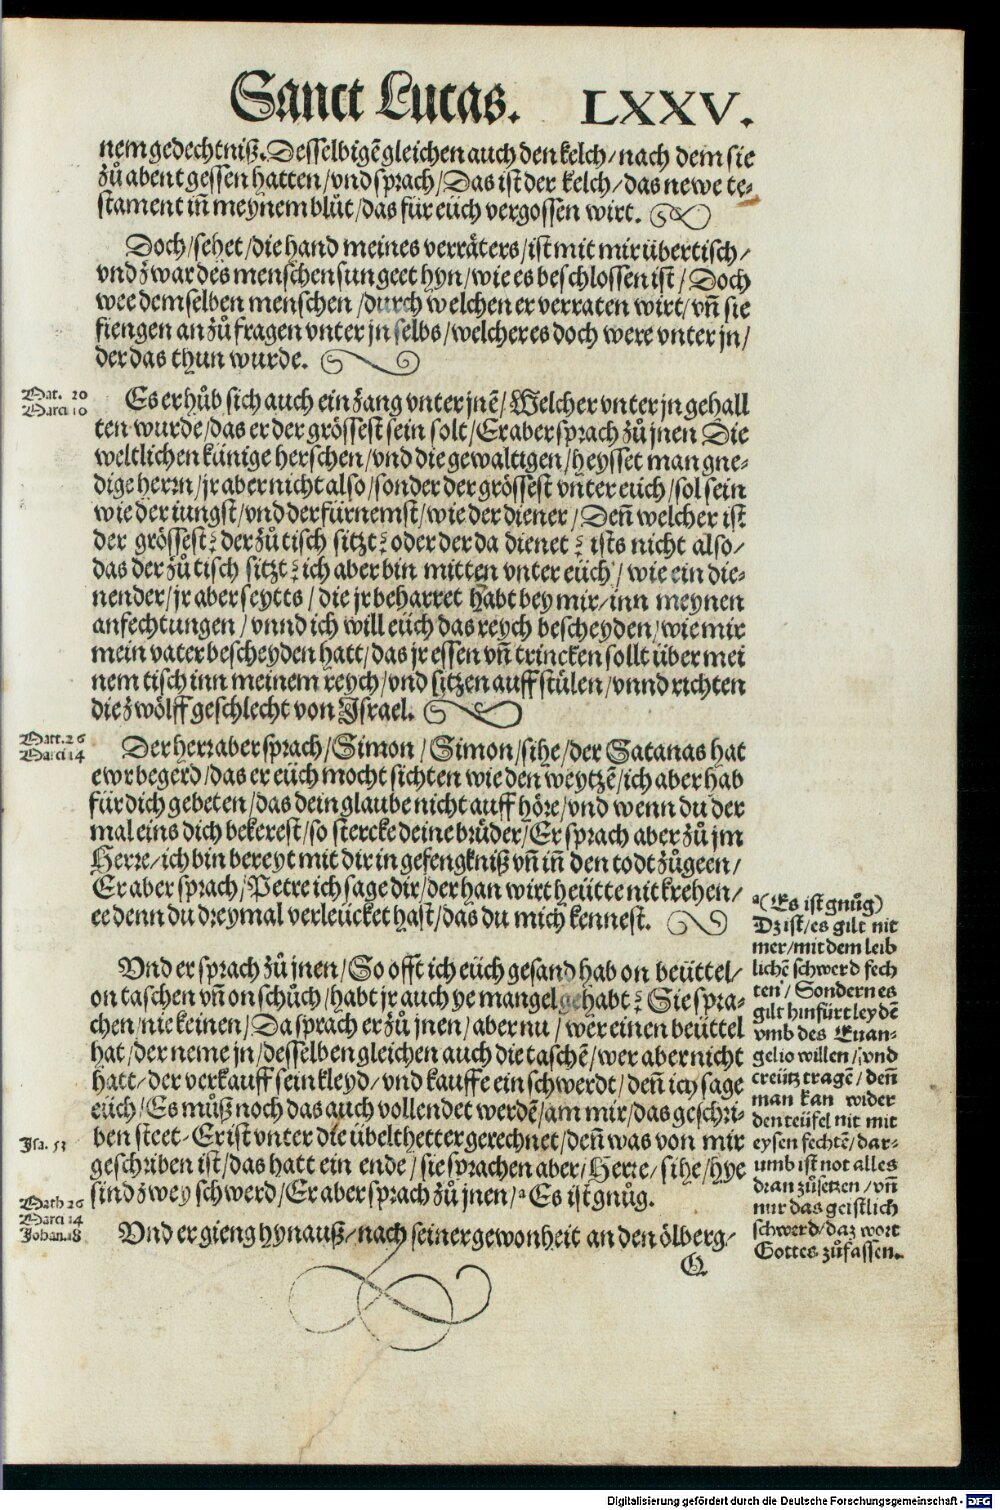 Sanct Lucas. LXXV.
nem gedechtniß. Desselbigē gleichen auch den kelch/ nach dem sie
zů abent gessen hatten/ vnd sprach/ Das ist der kelch/ das newe te-
stament iñ meynem blůt/ das für eüch vergossen wirt.
Doch/ sehet/ die hand meines verräters/ ist mit mir über tisch/
vnd zwar des menschen sun geet hyn/ wie es beschlossen ist/ Doch
wee dem selben menschen/ durch welchen er verraten wirt/ vñ sie
fiengen an zů fragen vnter jn selbs/ welcher es doch were vnter jn/
der das thun wurde.
Mat. 20
Marci 10
Es erhůb sich auch ein zang vnter jnē/ Welcher vnter jn gehall
ten wurde/ das er der grössest sein solt/ Er aber sprach zů jnen Die
weltlichen künige herschen/ vnd die gewaltigen/ heysset man gne-
dige herrn/ jr aber nicht also/ sonder der grössest vnter eüch/ sol sein
wie der iungst/ vnd der fürnemst/ wie der diener/ Deñ welcher ist
der grössest? der zů tisch sitzt? oder der da dienet? ists nicht also/
das der zů tisch sitzt? ich aber bin mitten vnter eüch/ wie ein die-
nender/ jr aber seytts/ die jr beharret habt bey mir/ inn meynen
anfechtungen/ vnnd ich will eüch das reych bescheyden/ wie mir
mein vater bescheyden hatt/ das jr essen vñ trincken sollt über mei
nem tisch inn meinem reych/ vnd sitzen auff stülen/ vnnd richten
die zwölff geschlecht von Israel.
Matt. 26
Marci 14
Der herr aber sprach/ Simon/ Simon/ sihe/ der Satanas hat
ewr begerd/ das er eüch mocht sichten wie den weytzē/ ich aber hab
für dich gebeten/ das dein glaube nicht auff höre/ vnd wenn du der
mal eins dich bekerest/ so stercke deine brüder/ Er sprach aber zů jm
Herre/ ich bin bereyt mit dir in gefengkniß vñ iñ den todt zů geen/
Er aber sprach/ Petre ich sage dir/ der han wirt heütte nit krehen/
ee denn du dreymal verleücket hast/ das du mich kennest.
Vnd er sprach zů jnen/ So offt ich eüch gesand hab on beüttel/
on taschen vñ on schůch/ habt jr auch ye mangel gehabt? Sie spra-
chen/ nie keinen/ Da sprach er zů jnen/ aber nu/ wer einen beüttel
hat/ der neme jn/ desselben gleichen auch die taschē/ wer aber nicht
hatt/ der verkauff sein kleyd/ vnd kauffe ein schwerdt/ deñ ich sage
eüch/ Es můß noch das auch vollendet werdē/ am mir/ das geschri-
ben steet/ Er ist vnter die übelthetter gerechnet/ deñ was von mir
Isa. 53
geschriben ist/ das hatt ein ende/ sie sprachen aber/ Herre/ sihe/ hye
sind zwey schwerd/ Er aber sprach zů jnen/ a Es ist gnůg.
Math 26
Marci 14
Johan. 18
Vnd er gieng hynauß/ nach seiner gewonheit an den ölberg/
Q
a (Es ist gnůg)
Dz ist/ es gilt nit
mer/ mit dem leib
lichē schwerd fech
ten/ Sondern es
gilt hinfürt leydē
vmb des Euan-
gelio willen/ vnd
creütz tragē/ deñ
man kan wider
den teüfel nit mit
eysen fechtē/ dar-
umb ist not alles
dran zůsetzen/ vñ
nur das geistlich
schwerd/ daz wort
Gottes zů fassen.
Digitalisierung gefördert durch die Deutsche Forschungsgemeinschaft - DFG